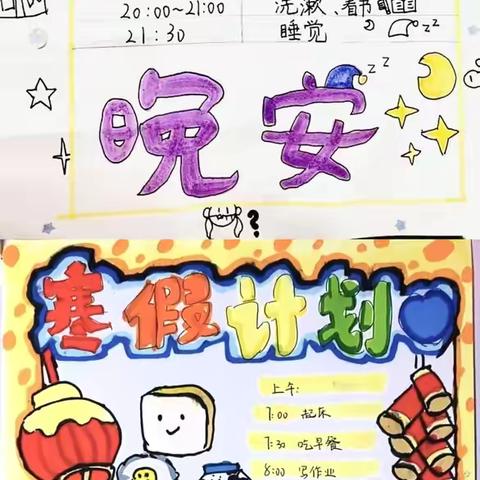 20:00~21:00 洗漱、看书
21:30 睡觉 zz
zz
晚安
?
寒假计划
上午:
7:00 起床
7:30 吃早餐
8:00 写作业